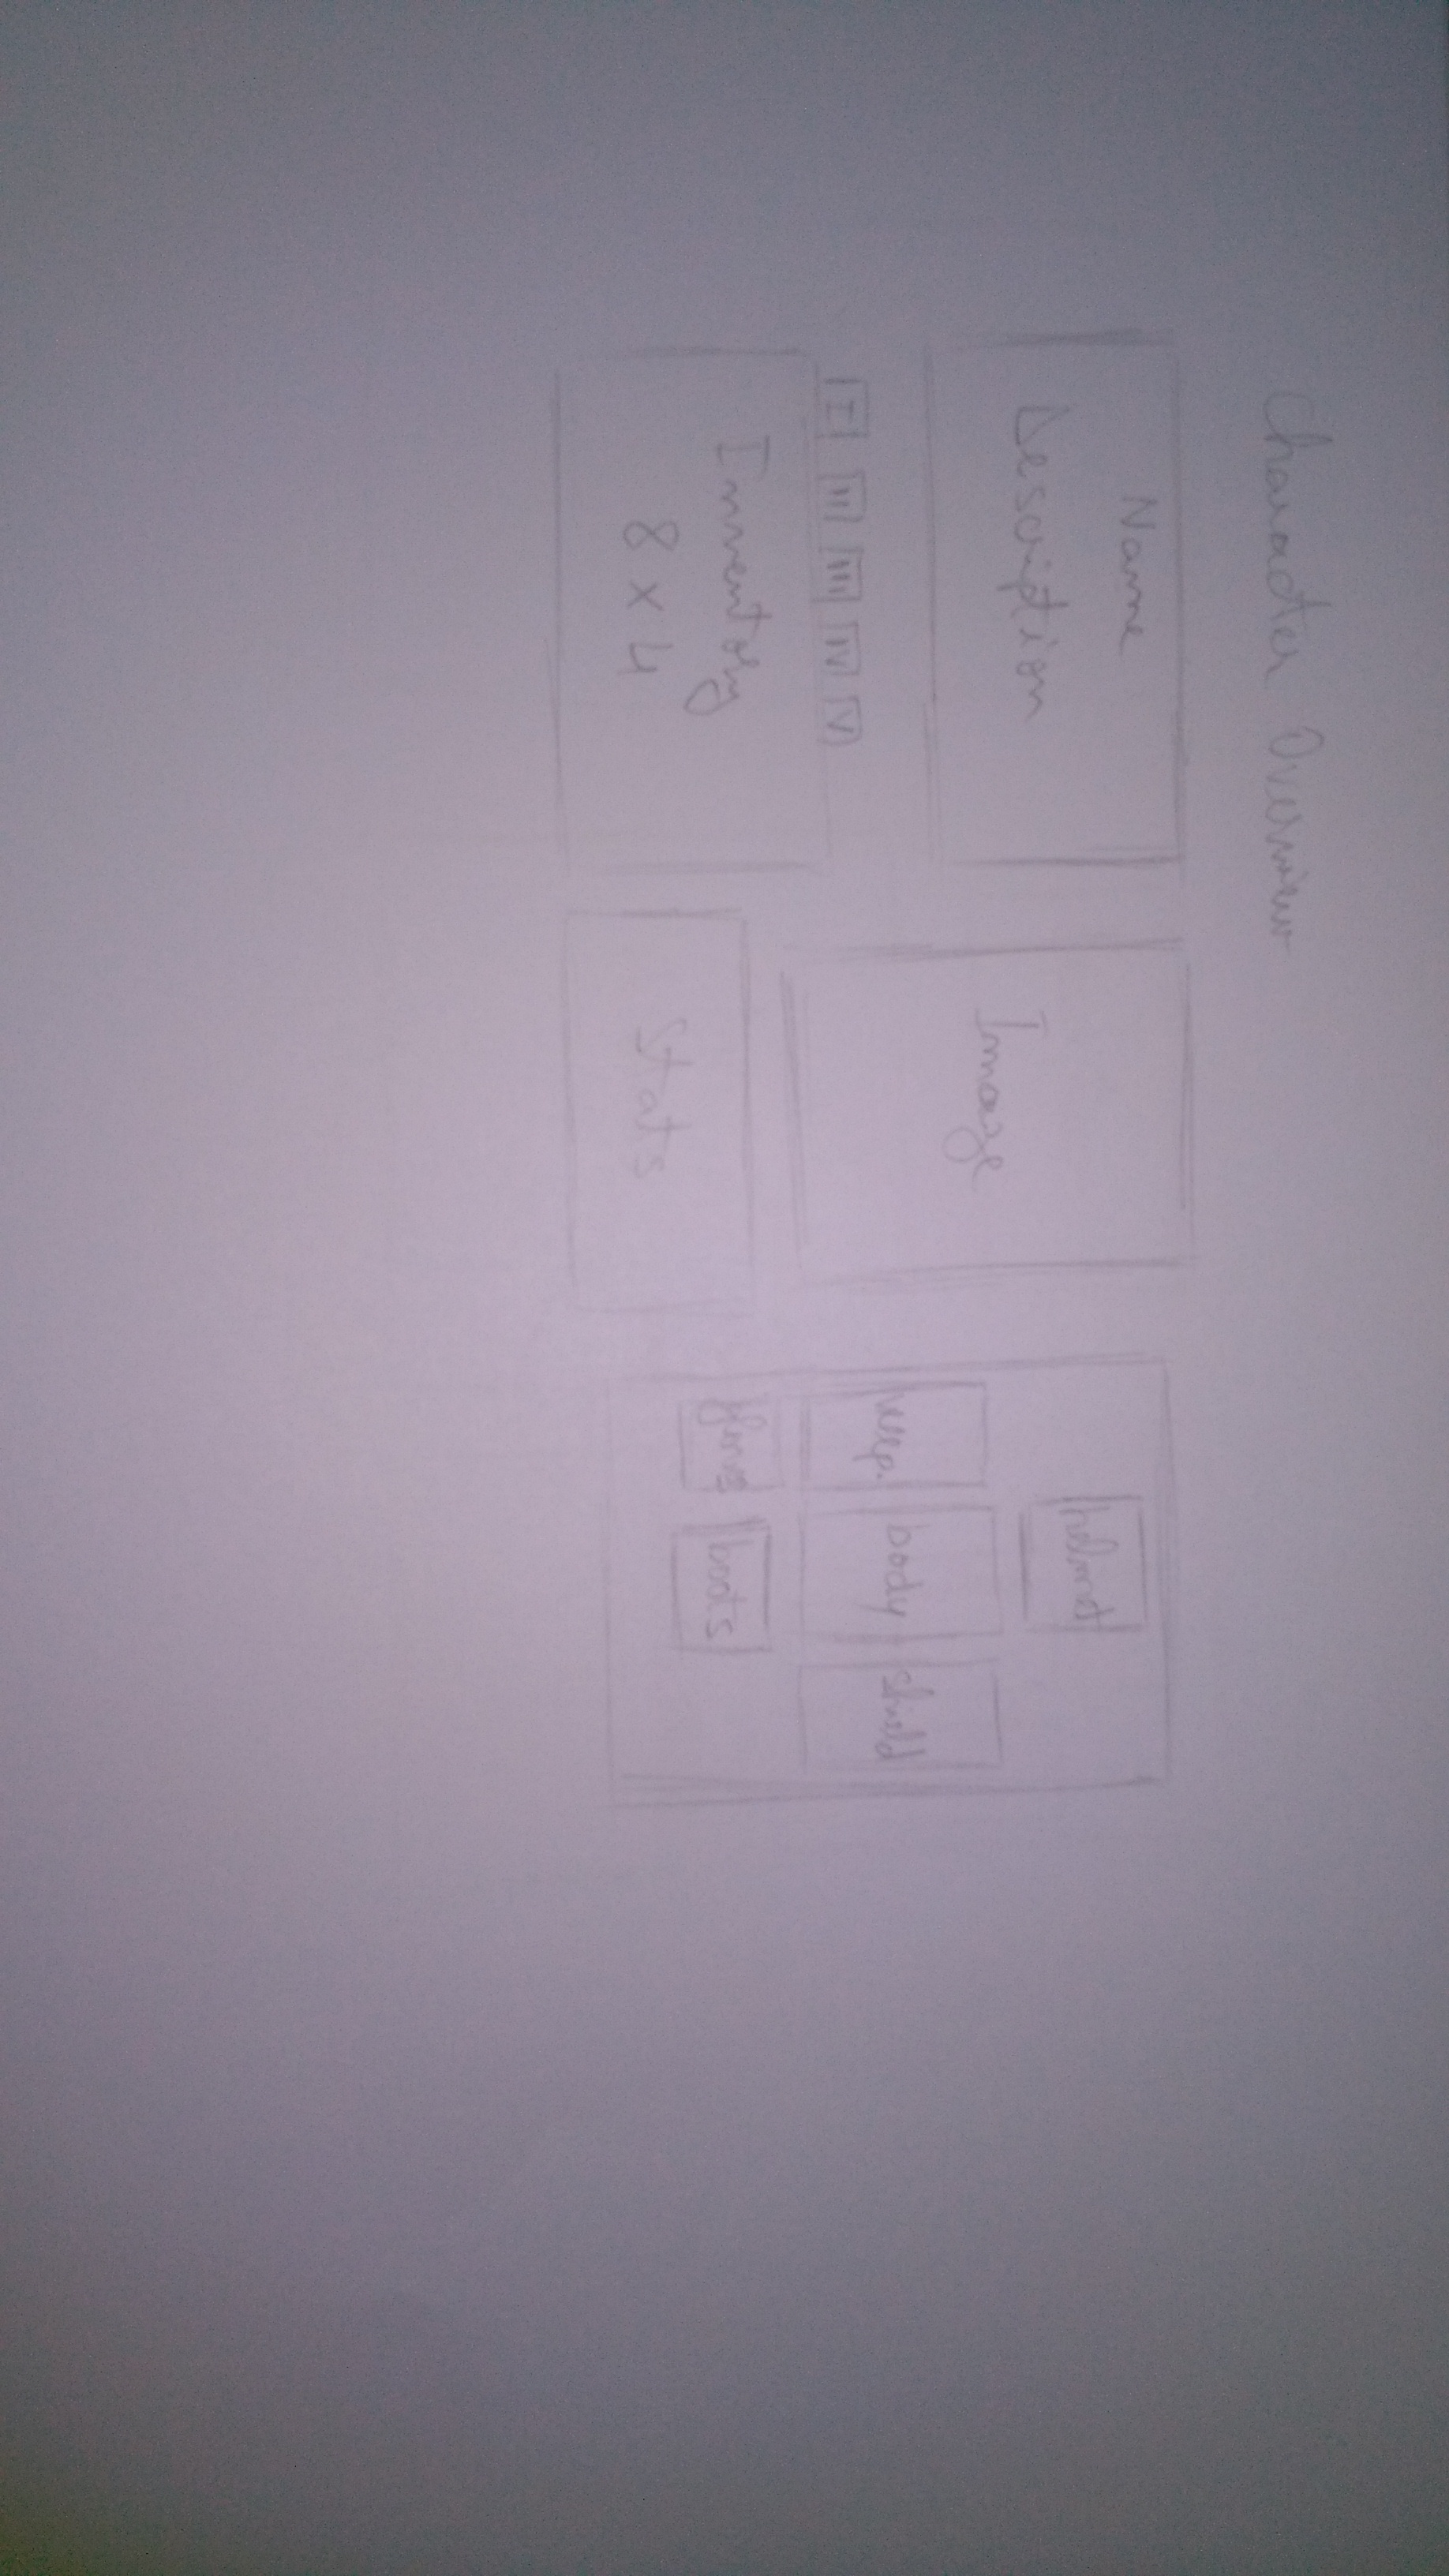 Character Overview
Name
Description
I II III IV V
Inventory
8 x 4
Image
Stats
helmet
body shield
boots